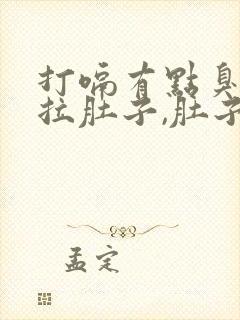 打嗝有點臭
拉肚子,肚子
孟定